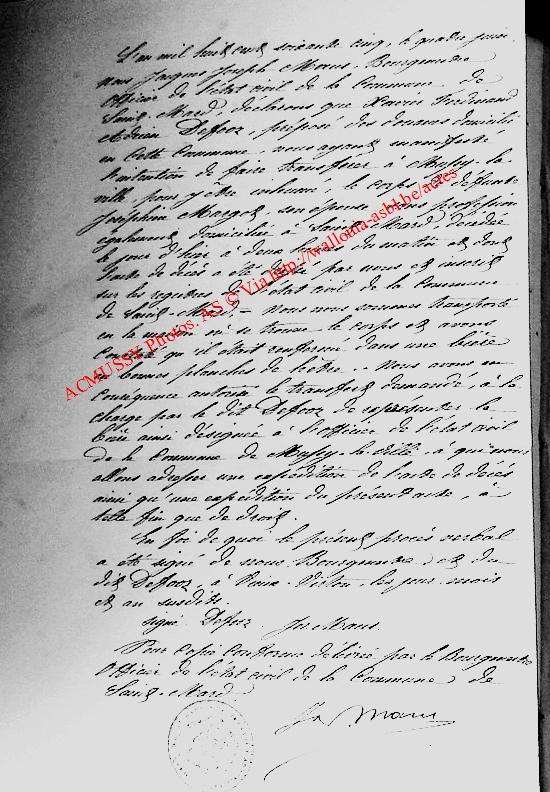 L'an mil huit cent soixante cinq, le quatre juin
nous Jacques Joseph Maus, Bourgmestre
Officier de l'état civil de la Commune de
Saint-Mard, déclarons que Ferdinand
Adrien Defooz, préposé des douanes domicilié
en cette Commune, nous ayant manifesté
l'intention de faire transférer à Mussy-la-
ville pour y être inhumé, le corps de défunte
Joséphine Margot, son épouse, sans profession
également domiciliée à Saint-Mard, décédée
le jour d'hier à deux heures du matin et dont
l'acte de décès a été par nous et inscrit
sur les registres de l'état civil de la Commune
de Saint-Mard. - Nous nous sommes transporté
en la maison où se trouve le corps et avons
constaté qu'il était renfermé dans une bière
en bonnes planches de hêtre. - Nous avons en
conséquence autorisé le transfert demandé, à la
charge par le dit Defooz de représenter la
bière ainsi désignée à l'officier de l'état civil
de la Commune de Mussy-la-Ville, à qui nous
allons adresser une expédition de l'acte de décès
ainsi qu'une expédition du présent acte, à
telle fin que de droit.
En foi de quoi le présent procès verbal
a été signé de nous Bourgmestre et du
dit Defooz, à Vieux-Virton, les jour, mois
et an susdits.
signé Defooz. Jh Maus.
Pour Copie Conforme délivrée par le Bourgmestre
Officier de l'état civil de la Commune de
Saint-Mard
Jh Maus
ACMUSSY Photos. AS © Via http://wallonia-asbl.be/actes